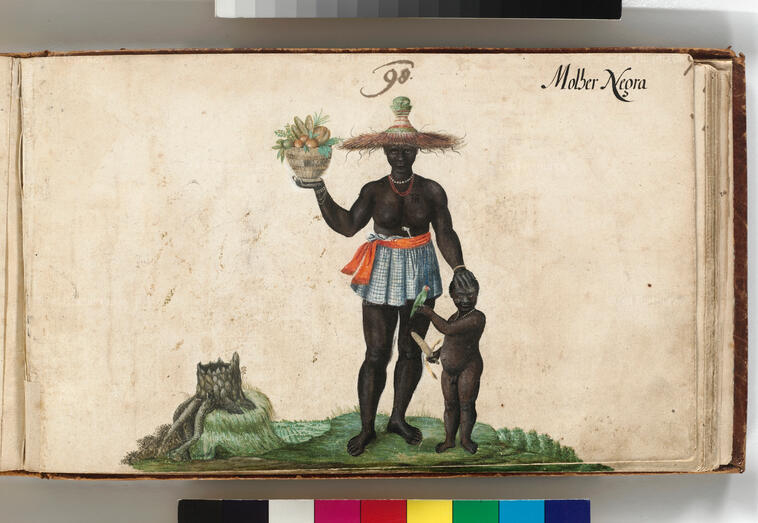 98.
Molher Negra